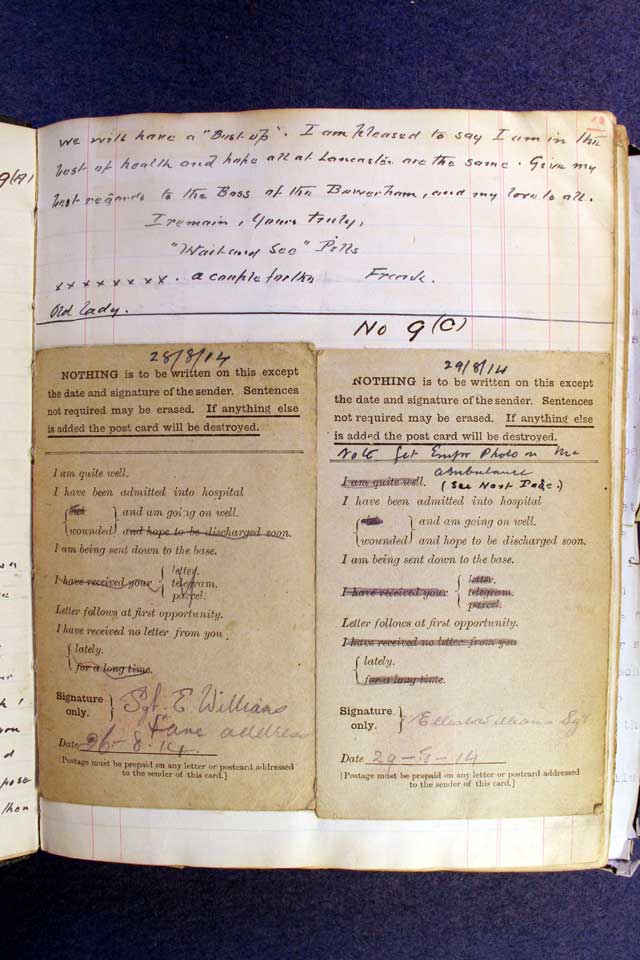 we will have a "Bust up". I am pleased to say I am in the
best of health and hope all at Lancaster are the same. Give my
best regards to the Boss of the Bowerham, and my love to all.
I remain, Yours truly,
"Wait and See" Pills
x x x x x x x x. a couple for the Frank.
Old lady.
No 9(C)
28/8/14
NOTHING is to be written on this except
the date and signature of the sender. Sentences
not required may be erased. If anything else
is added the post card will be destroyed.
I am quite well.
I have been admitted into hospital
sick and am going on well.
wounded and hope to be discharged soon.
I am being sent down to the base.
I have received your letter.
telegram.
parcel.
Letter follows at first opportunity.
I have received no letter from you
lately.
for a long time.
Signature only. Sgt. E. Williams
address
Date 26-8-14.
[Postage must be prepaid on any letter or postcard addressed
to the sender of this card.]
29/8/14
NOTHING is to be written on this except
the date and signature of the sender. Sentences
not required may be erased. If anything else
is added the post card will be destroyed.
Note Photo
ambulance
I am quite well. (See Next Page.)
I have been admitted into hospital
sick and am going on well.
wounded and hope to be discharged soon.
I am being sent down to the base.
I have received your letter.
telegram.
parcel.
Letter follows at first opportunity.
I have received no letter from you
lately.
for a long time.
Signature only. Williams Sgt
Date 29-8-14
[Postage must be prepaid on any letter or postcard addressed
to the sender of this card.]